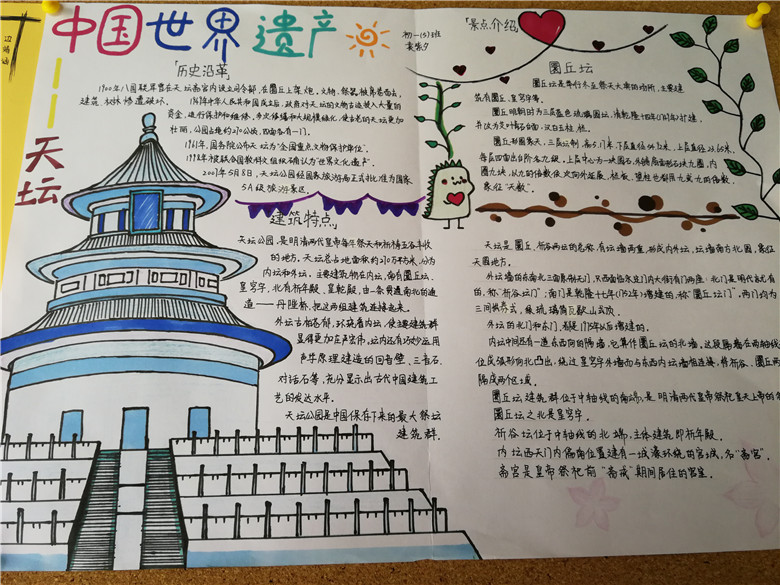 中国世界遗产
——天坛
初一(5)班
「历史沿革」
1900年八国联军曾在天坛斋宫内设立司令部,在圜丘上架炮。文物、祭器被席卷而去,
建筑、树林惨遭破坏。
1949年中华人民共和国成立后,政府对天坛的文物古迹投入大量的
资金,进行保护和维修。多次修缮和大规模绿化,使古老的天坛更加
壮丽,公园占地约270公顷,四面各有一门。
1961年,国务院公布天坛为“全国重点文物保护单位”。
1998年被联合国教科文组织确认为“世界文化遗产”。
2007年5月8日,天坛公园经国家旅游局正式批准为国家
5A级旅游景区。
「建筑特点」
天坛公园,是明清两代皇帝每年祭天和祈祷五谷丰收
的地方。天坛总占地面积约270万平方米,分为
内坛和外坛。主要建筑物在内坛,南有圜丘坛、
皇穹宇,北有祈年殿、皇乾殿,由一条贯通南北的甬
道——丹陛桥,把这两组建筑连接起来。
外坛古柏苍郁,环绕着内坛,使主要建筑群
显得更加庄严宏伟。坛内还有巧妙运用
声学原理建造的回音壁、三音石、
对话石等,充分显示出古代中国建筑工
艺的发达水平。
天坛公园是中国保存下来的最大祭坛
建筑群。
「景点介绍」
圜丘坛
圜丘坛是举行冬至祭天大典的场所,主要建
筑有圜丘、皇穹宇等。
圜丘明朝时为三层蓝色琉璃圆坛,清乾隆十四年(1749年)扩建,
并改为艾叶青石台面,汉白玉柱、栏。
圜丘形圆象天,三层坛制,高5.17米,下层直径54.92米,上层直径23.65米,
每层四面出台阶各九级。上层中心为一块圆石,外铺扇面形石块九圈,内
圈九块,以九的倍数依次向外延展,栏板、望柱也都用九或九的倍数,
象征“天数”。
天坛是圜丘、祈谷两坛的总称,有坛墙两重,形成内外坛,坛墙南方北圆,象征
天圆地方。
外坛墙的东南北三面原制无门,只西面临永定门内大街有门两座:北门是明代旧有
的,称“祈谷坛门”;南门是乾隆十七年(1752年)增建的,称“圜丘坛门”。两门均为
三间拱券式,绿琉璃筒瓦歇山式顶。
外坛的北门和东门,都是1975年以后增建的。
内坛中间还有一道东西向的隔墙,它算作圜丘坛的北墙,这段隔墙在两轴线
位成弧形向北凸出,绕过皇穹宇外墙而与东西内坛墙相连接,将祈谷、圜丘两
隔成两个区域。
圜丘坛建筑群位于中轴线的南端,是明清两代皇帝祭祀皇天上帝的
圜丘坛之北是皇穹宇。
祈谷坛位于中轴线的北端,主体建筑即祈年殿。
内坛西天门内偏南位置建有一城濠环绕的宫城,名“斋宫”。
斋宫是皇帝祭祀前“斋戒”期间居住的宫室。